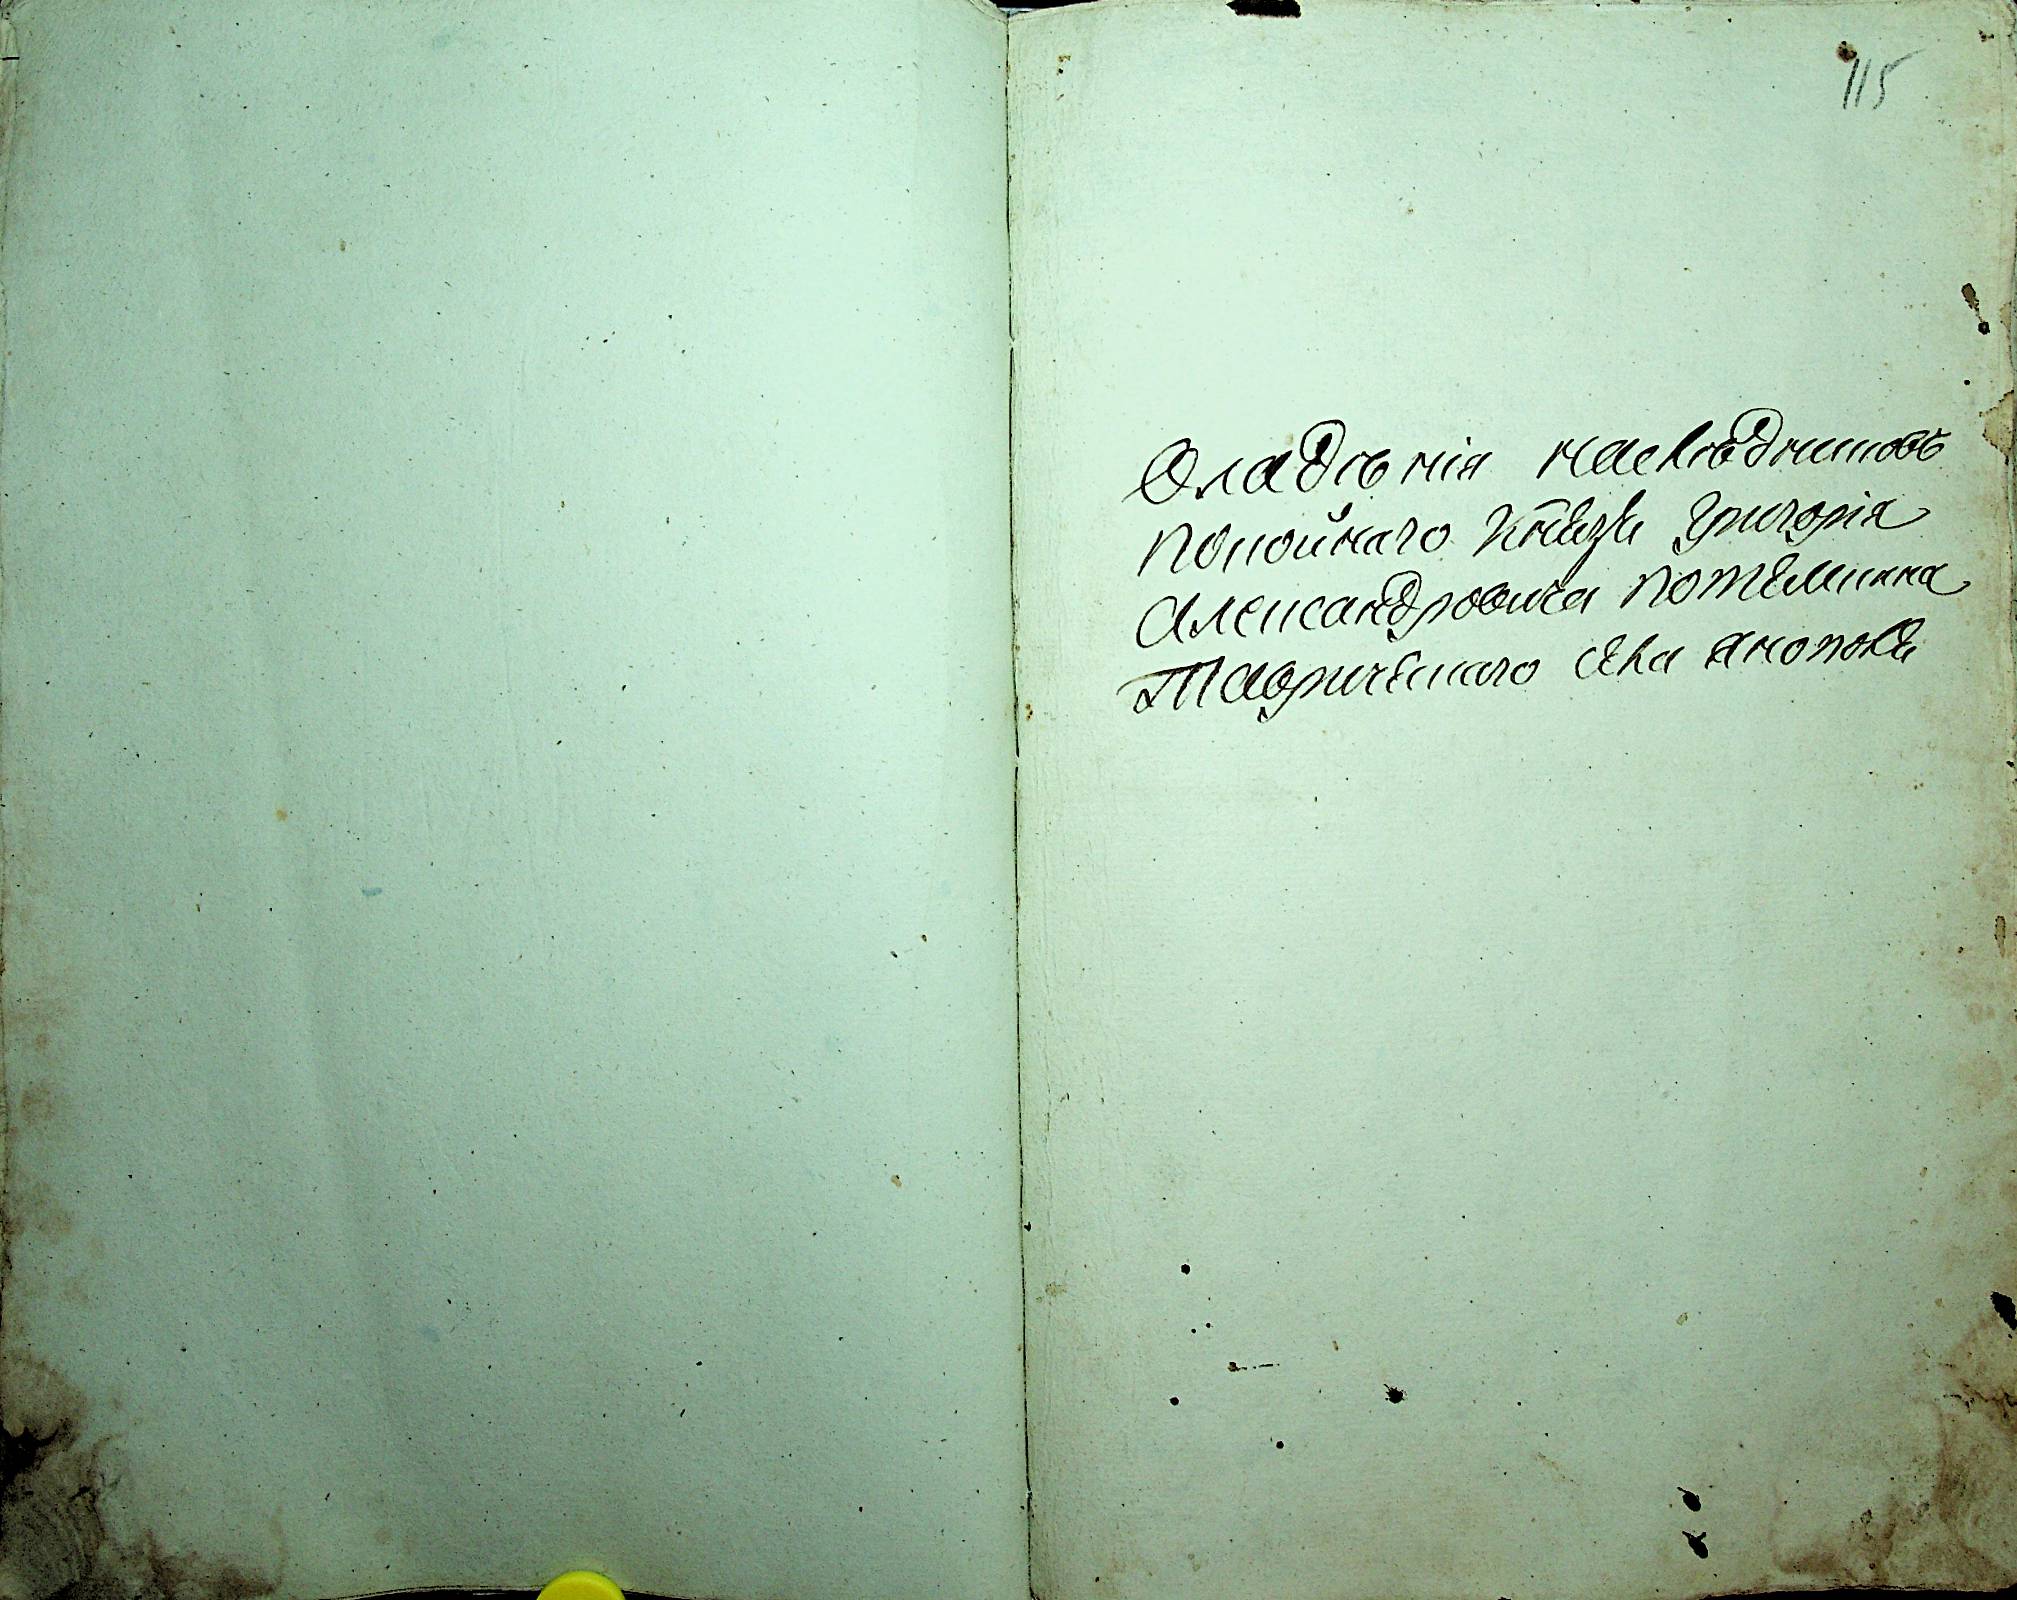 115
Владѣнія наслѣдниковъ
покойнаго князя Григорія
Александровича Потемкина
Таврическаго села Анополя